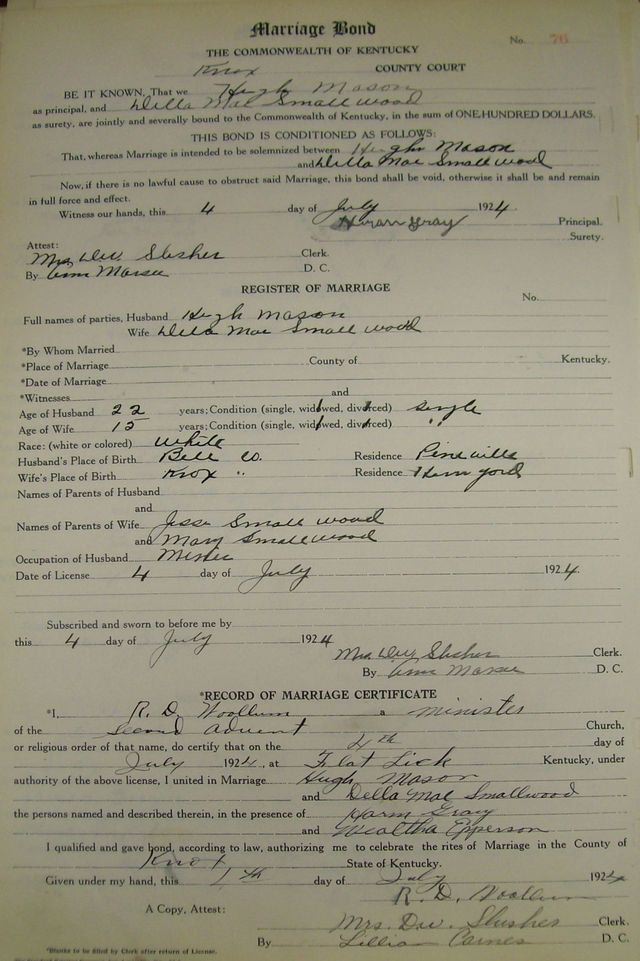 Marriage Bond
No. 76
THE COMMONWEALTH OF KENTUCKY
Knox COUNTY COURT
BE IT KNOWN, That we Hugh Mason
as principal, and Della Mae Smallwood
as surety, are jointly and severally bound to the Commonwealth of Kentucky, in the sum of ONE HUNDRED DOLLARS.
THIS BOND IS CONDITIONED AS FOLLOWS:
That, whereas Marriage is intended to be solemnized between Hugh Mason
and Della Mae Smallwood
Now, if there is no lawful cause to obstruct said Marriage, this bond shall be void, otherwise it shall be and remain
in full force and effect.
Witness our hands, this 4 day of July 1924.
Hiram Gray Principal.
Surety.
Attest:
Mrs. Slusher Clerk.
By D. C.
REGISTER OF MARRIAGE
No.
Full names of parties, Husband Hugh Mason
Wife Della Mae Smallwood
*By Whom Married
*Place of Marriage County of Kentucky.
*Date of Marriage
*Witnesses and
Age of Husband 22 years; Condition (single, widowed, divorced) single
Age of Wife 15 years; Condition (single, widowed, divorced) "
Race: (white or colored) white
Husband's Place of Birth Bell Co. Residence Pineville
Wife's Place of Birth Knox " Residence
Names of Parents of Husband
and
Names of Parents of Wife Jesse Smallwood
and Mary Smallwood
Occupation of Husband
Date of License 4 day of July 1924.
Subscribed and sworn to before me by
this 4 day of July 1924
Mrs. Slusher Clerk.
By D. C.
*RECORD OF MARRIAGE CERTIFICATE
*I, R. D. Woollum a minister
of the Second Advent Church,
or religious order of that name, do certify that on the 4th day of
July 1924, at Flat Lick Kentucky, under
authority of the above license, I united in Marriage Hugh Mason
and Della Mae Smallwood
the persons named and described therein, in the presence of Harm Gray
and Wealtha Epperson
I qualified and gave bond, according to law, authorizing me to celebrate the rites of Marriage in the County of
Knox State of Kentucky.
Given under my hand, this day of July 1924
R. D. Woollum
A Copy, Attest:
Mrs. Daw. Slusher Clerk.
By Lillian D. C.
*Blanks to be filled by Clerk after return of License.